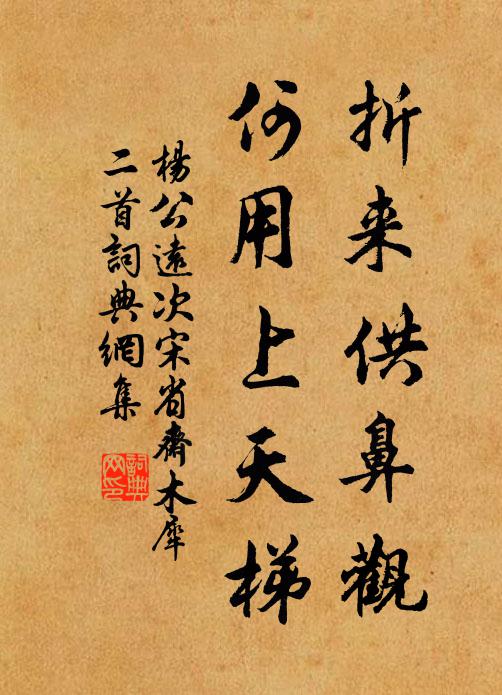 折来供鼻觀
何用上天梯
楊公遠次宋省齋木犀
二首詞典網集
詞典
网印